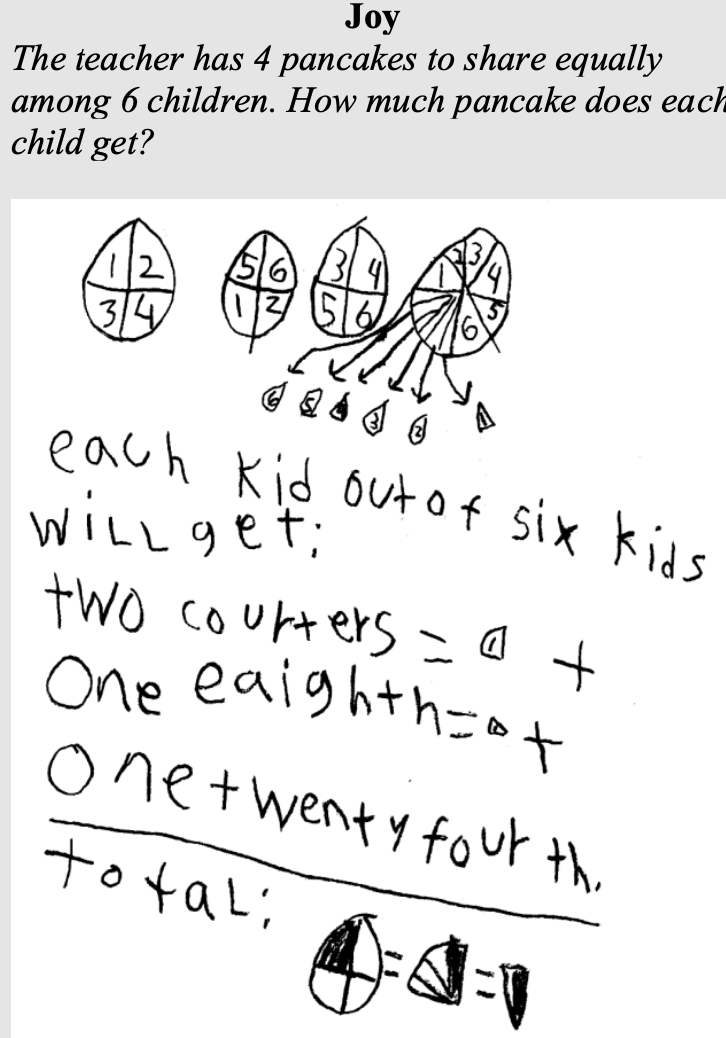 Joy
The teacher has 4 pancakes to share equally
among 6 children. How much pancake does each
child get?
1 2 5 6 3 4 1 2 3 4
3 4 1 2 5 6 6 5
6 5 4 3 2 1
each kid out of six kids
will get:
two courters = 1 +
One eaighth = +
One twenty fourth.
total: = =